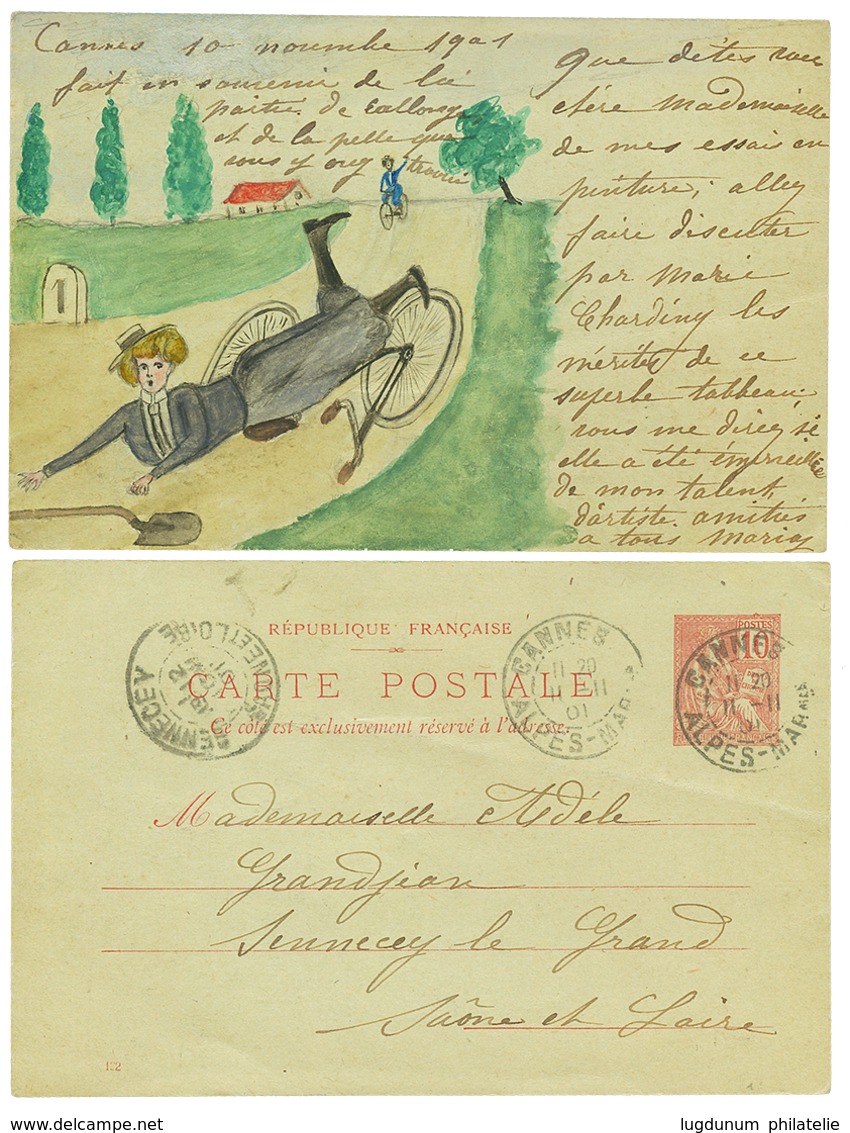 Cannes 10 novembre 1901
fait en souvenir de la
partie de
et de la pelle que
vous y
1
Que dites vous
chère Mademoiselle
de mes essais en
peinture, allez
faire discuter
par Marie
Chardiny les
mérites de ce
superbe tableau,
vous me direz si
elle a été émerveillée
de mon talent
d'artiste. amitiés
a tous
RÉPUBLIQUE FRANÇAISE
CARTE POSTALE
Ce côté est exclusivement réservé à l'adresse.
POSTES
10
CANNES
11 20
11 -11
01
ALPES-MARMES
CANNES
11 20
11 -11
01
ALPES-MARMES
SENNECEY
SAÔNE ET LOIRE
Mademoiselle Adèle
Grandjean
Sennecey le Grand
Saône et Loire
132
lugdunum philatelie
www.delcampe.net